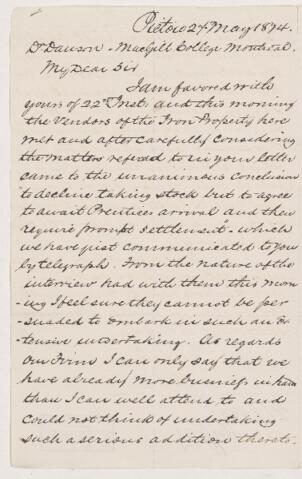 Pictou 27 May 1874.
Dr Dawson - MacGill College Montreal.
My Dear Sir
I am favored with
yours of 22nd Inst. and this morning
the Vendors of the Iron Property here
met and after carefully considering
the matters referred to in your letter
came to the unanimous conclusion
to decline taking stock but to agree
to await Prentices arrival and then
require prompt settlement - which
we have just communicated to you
by telegraph. From the nature of the
interview had with them this morn-
ing I feel sure they cannot be per
suaded to embark in such an ex
tensive undertaking. As regards
our Firm I can only say that we
have already more business in hand
than I can well attend to and
could not think of undertaking
such a serious addition thereto.